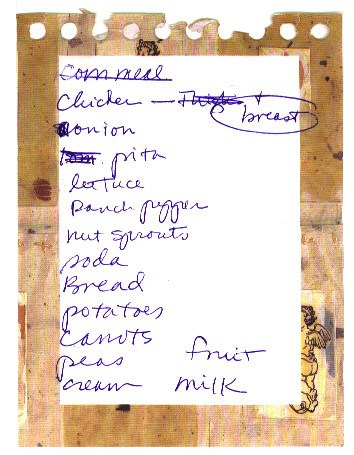 cornmeal
chicken — thighs + breast
onion
pita
lettuce
Ranch pepper
nut sprouts
soda
Bread
potatoes
carrots
peas fruit
cream milk